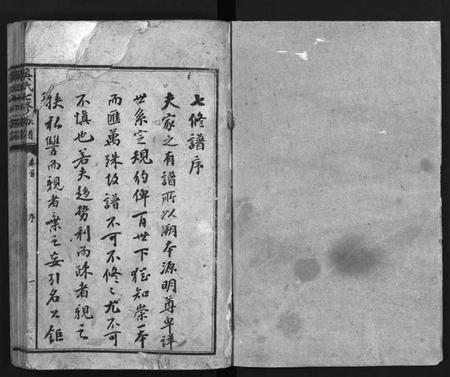 七修譜序
夫家之有譜所以溯本源明尊卑詳
世系定規約俾百世下猶知崇一本
而匯萬殊故譜不可不修〻尤不可
不慎也若夫趨勢利而疎者親之
挾私讐而親者棄之妄引名公鉅
吳氏七修
卷首 序 一